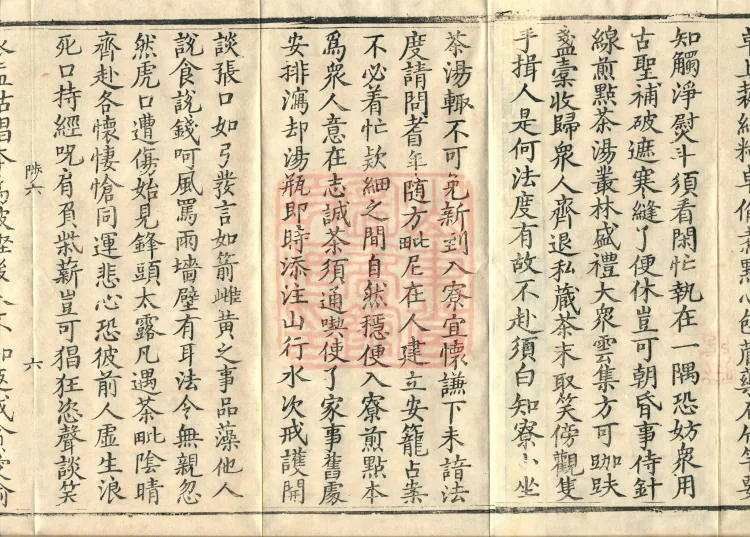 知觸淨熨斗須看閑忙執在一隅恐妨衆用
古聖補破遮寒縫了便休豈可朝昏事侍針
線煎點茶湯叢林盛禮大衆雲集方可跏趺
盞橐收歸衆人齊退私藏茶末取笑傍觀隻
手揖人是何法度有故不赴須白知寮坐
茶湯輙不可免新到入寮宜懷謙下未諳法
度請問耆年随方毗尼在人建立安籠占案
不必着忙欵細之間自然穩便入寮煎點本
爲衆人意在志誠茶須通喫使了家事舊處
安排瀉却湯瓶即時添注山行水次戒護開
談張口如弓發言如箭雌黄之事品藻他人
說食說錢呵風罵雨墻壁有耳法令無親忽
然虎口遭傷始見鋒頭太露凡遇茶毗陰晴
齊赴各懷悽愴同運悲心恐彼前人虛生浪
死口持經呪肩負柴薪豈可猖狂恣聲談笑
陟六 六